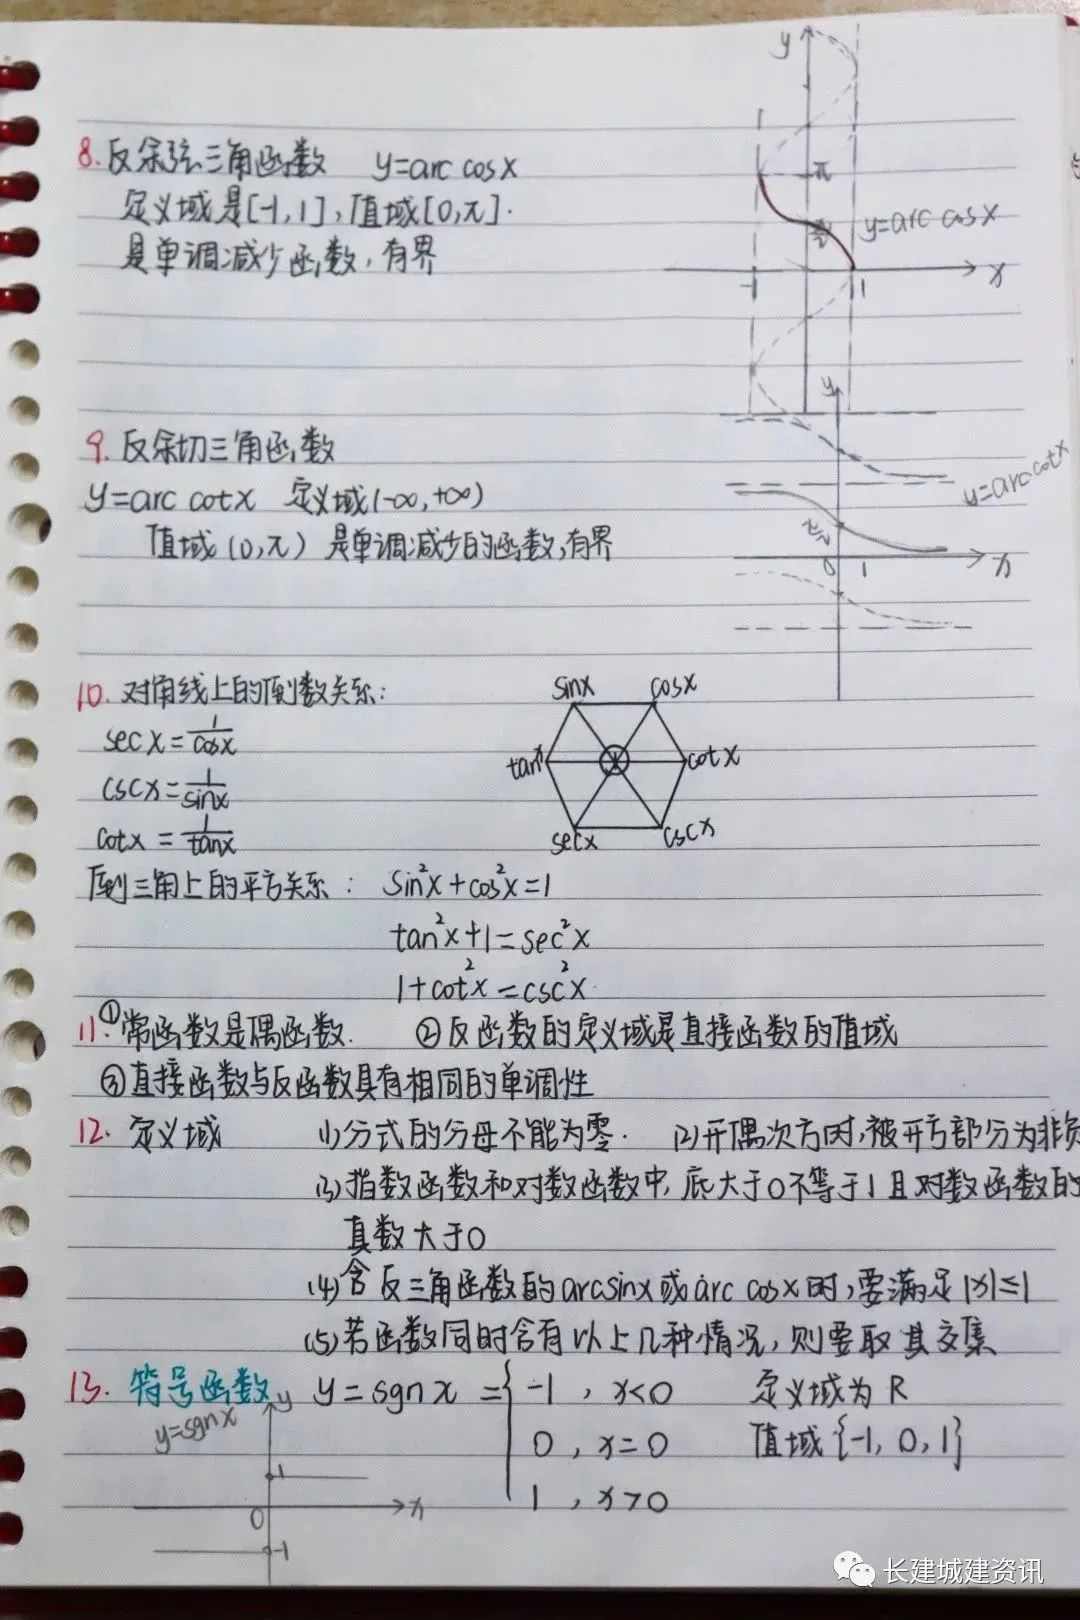 8.反余弦三角函数 y=arc cosx
定义域是[-1,1],值域[0,π].
是单调减少函数,有界
y
π
π/2
y=arc cosx
-1
1
x
9.反余切三角函数
y=arc cotx 定义域(-∞,+∞)
值域(0,π) 是单调减少的函数,有界
y
y=arc cotx
π/2
0
1
x
10.对角线上的倒数关系:
secx=1/cosx
cscx=1/sinx
cotx=1/tanx
sinx
cosx
tanx
cotx
secx
cscx
倒三角上的平方关系: sin²x+cos²x=1
tan²x+1=sec²x
1+cot²x=csc²x
11.①常函数是偶函数. ②反函数的定义域是直接函数的值域
③直接函数与反函数具有相同的单调性
12.定义域 (1)分式的分母不能为零. (2)开偶次方时,被开方部分为非负
(3)指数函数和对数函数中,底大于0不等于1且对数函数的
真数大于0
(4)含反三角函数的arcsinx或arc cosx时,要满足|x|≤1
(5)若函数同时含有以上几种情况,则要取其交集
13.符号函数 y=sgnx={-1,x<0 定义域为R
0,x=0 值域{-1,0,1}
1,x>0
y=sgnx
y
1
0
x
-1
长建城建资讯